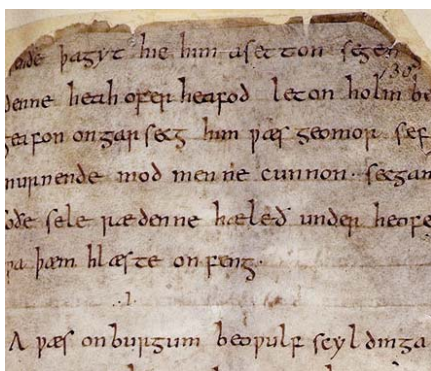 ende þagyt hie him asetton segen
130
denne heah ofer heafod leton holm be
geafon ongarsecg him ƿæs geomor sef
murnende mod men ne cunnon· secgan
soðe sele rædenne hæleð under heofe
ƿa þæm hlæste onfeng·
.I.
A ƿæs onburgum beoƿulf scyldinga